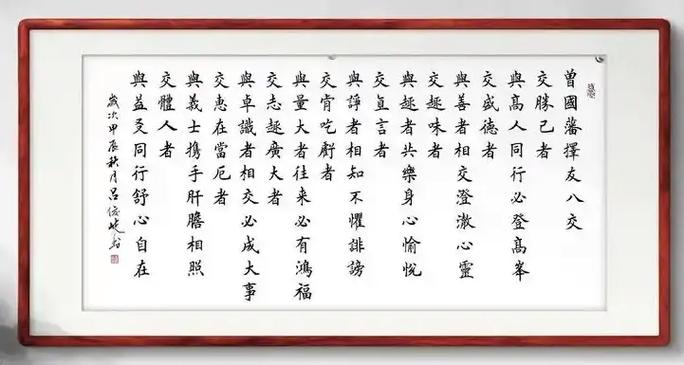 曾國藩擇友八交
交勝己者
與髙人同行必登髙峯
交盛德者
與善者相交澄澈心靈
交趣味者
與趣者共樂身心愉悅
交直言者
與諍者相知不懼誹謗
交肯吃虧者
與量大者往来必有鴻福
交志趣廣大者
與卓識者相交必成大事
交惠在當厄者
與義士携手肝膽相照
交體人者
與益友同行舒心自在
歲次甲辰秋月呂